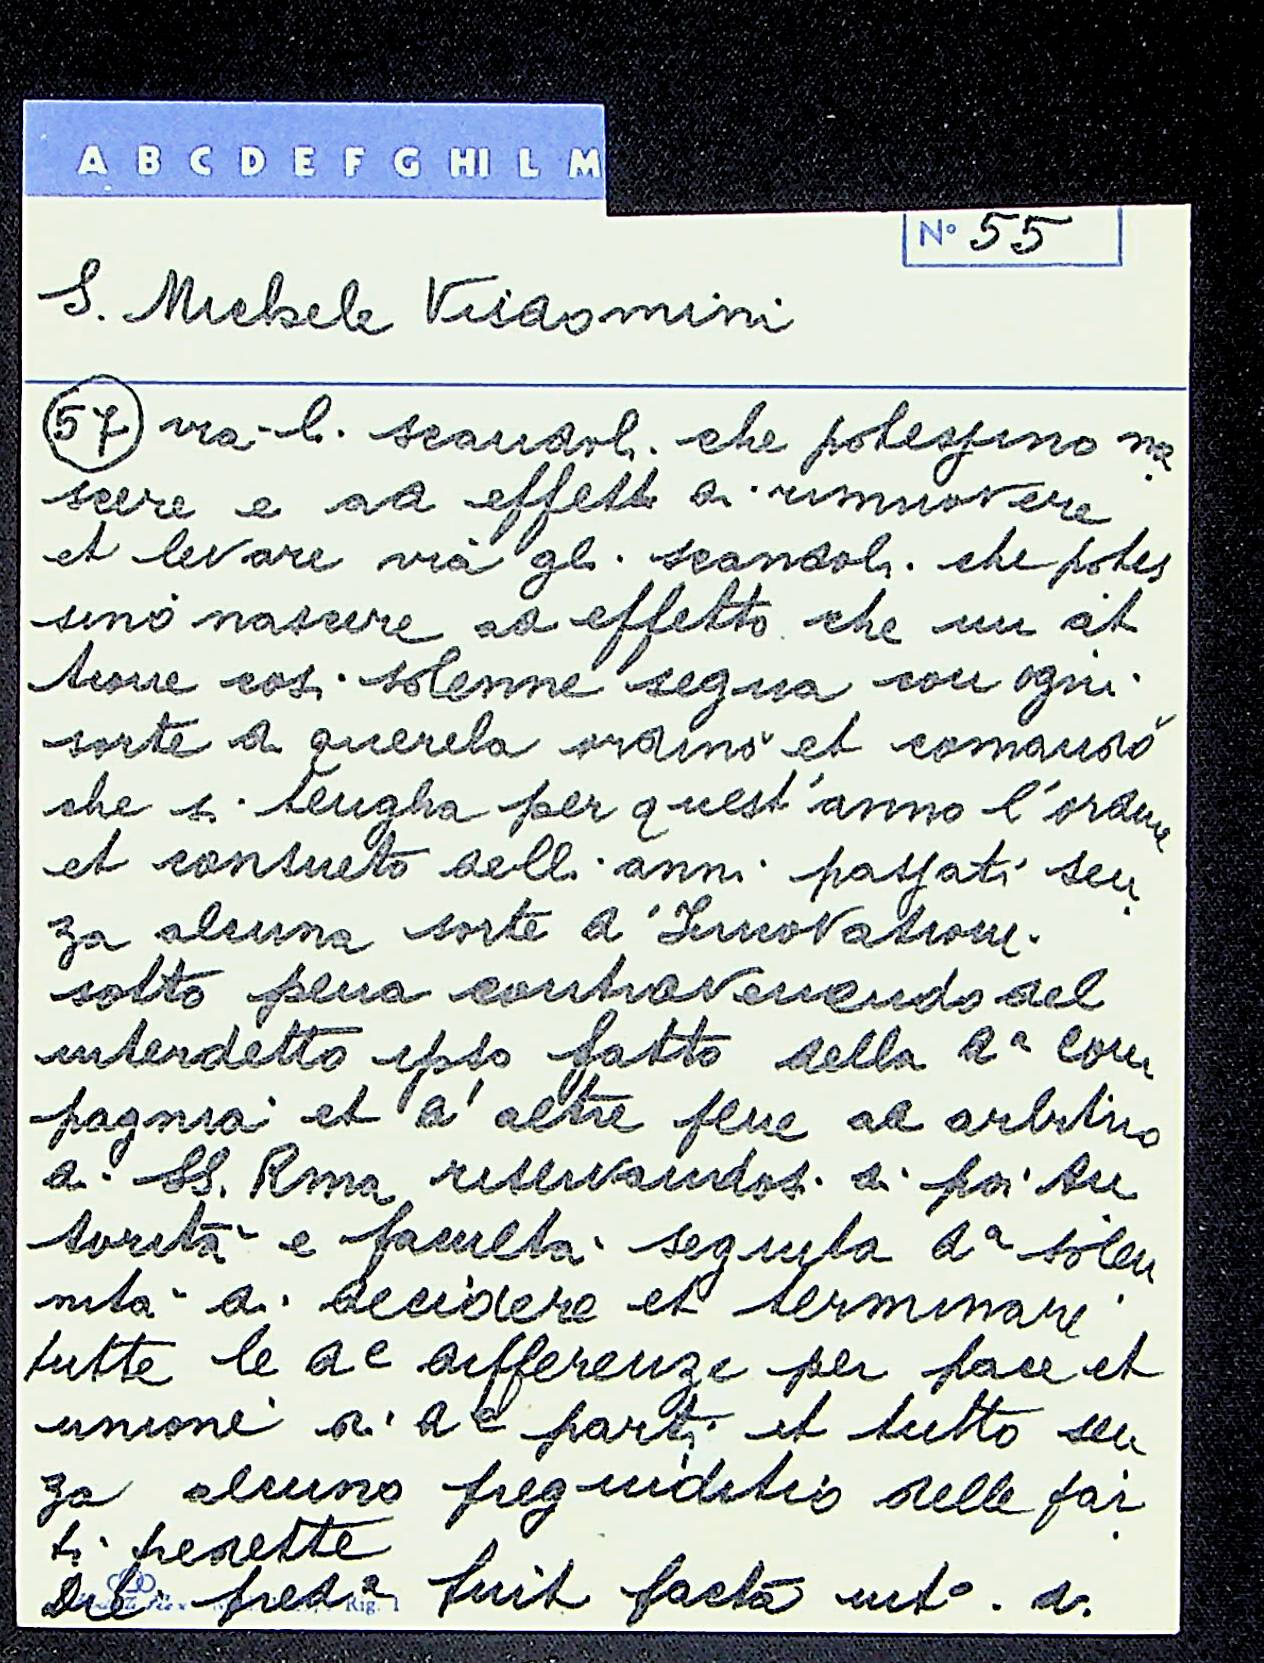 A B C D E F G HI L M
N° 55
S. Michele Visdomini
57 via li scandoli che potessino na
scere e ad effetto di rimuovere
et levare via gli scandoli che potes
sino nascere ad effetto che un at
tione cosi solenne segua con ogni
sorte di querela ordinò et comandò
che si tengha per quest'anno l'ordine
et consueto delli anni passati sen
za alcuna sorte d'Innovatione
sotto pena contravenendo del
interdetto ipso fatto della da com
pagnia et d'altre pene ad arbitrio
di SS. Rma reservandosi di poi au
torità e facultà seguita da solen
nità di decidere et terminare
tutte le de differenze per pace et
unione di de parti et tutto sen
za alcuno preguiditio delle par
ti predette
Die preda fuit facta